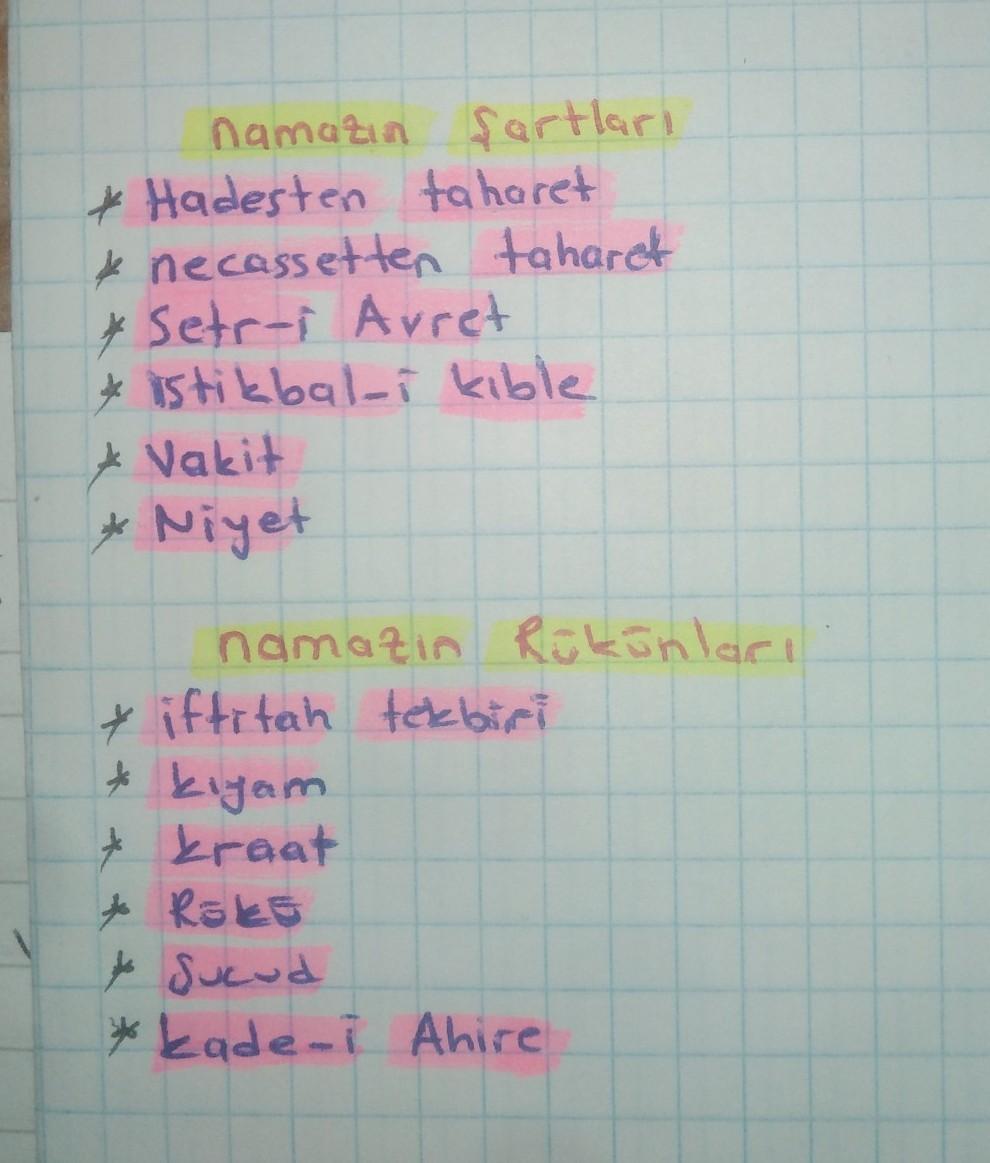 namazın Şartları
* Hadesten taharet
* necassetten taharet
* Setr-i Avret
* istikbal-i kıble
* Vakit
* Niyet
namazın Rükünları
* iftitah tekbiri
* kıyam
* kraat
* Rükü
* Sucud
* kade-i Ahire